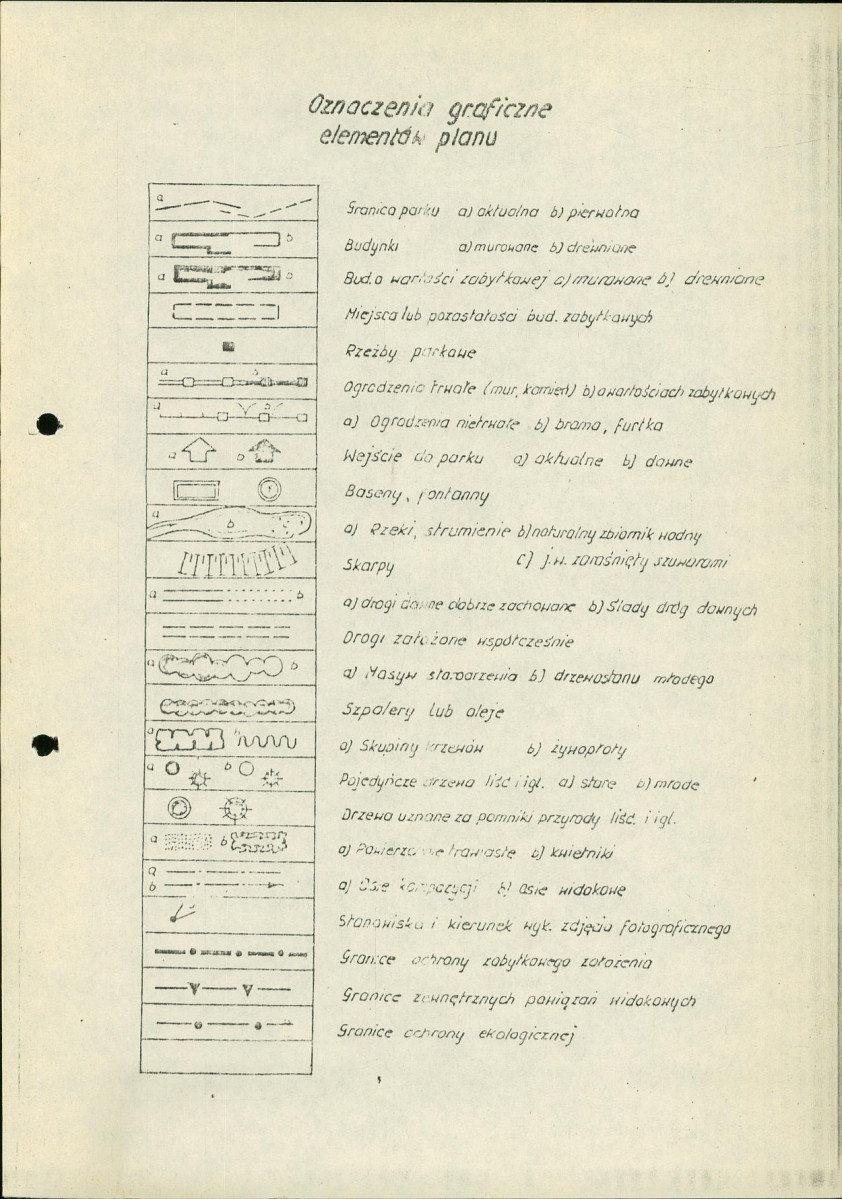 Oznaczenia graficzne
elementów planu
a
Granica parku a) aktualna b) pierwotna
a b
Budynki a) murowane b) drewniane
a b
Bud. o wartości zabytkowej a) murowane b) drewniane
Miejsca lub pozostałości bud. zabytkowych
Rzeźby parkowe
a b
Ogrodzenia trwałe (mur, kamień) b) o wartościach zabytkowych
a b
a) Ogrodzenia nietrwałe b) brama, furtka
a b
Wejście do parku a) aktualne b) dawne
Baseny, fontanny
a b
a) Rzeki, strumienie b) naturalny zbiornik wodny
Skarpy c) j.w. zarośnięty szuwarami
a b
a) drogi dawne dobrze zachowane b) Ślady dróg dawnych
Drogi założone współcześnie
a b
a) Masyw starodrzewia b) drzewostanu młodego
Szpalery lub aleje
a b
a) Skupiny krzewów b) żywopłoty
a b
Pojedyńcze drzewa liść i igl. a) stare b) młode
Drzewa uznane za pomniki przyrody liść. i igl.
a b
a) Powierzchnie trawiaste b) kwietniki
a
b
a) Osie kompozycji b) osie widokowe
Stanowiska i kierunek wyk. zdjęcia fotograficznego
Granice ochrony zabytkowego założenia
Granice zewnętrznych powiązań widokowych
Granice ochrony ekologicznej